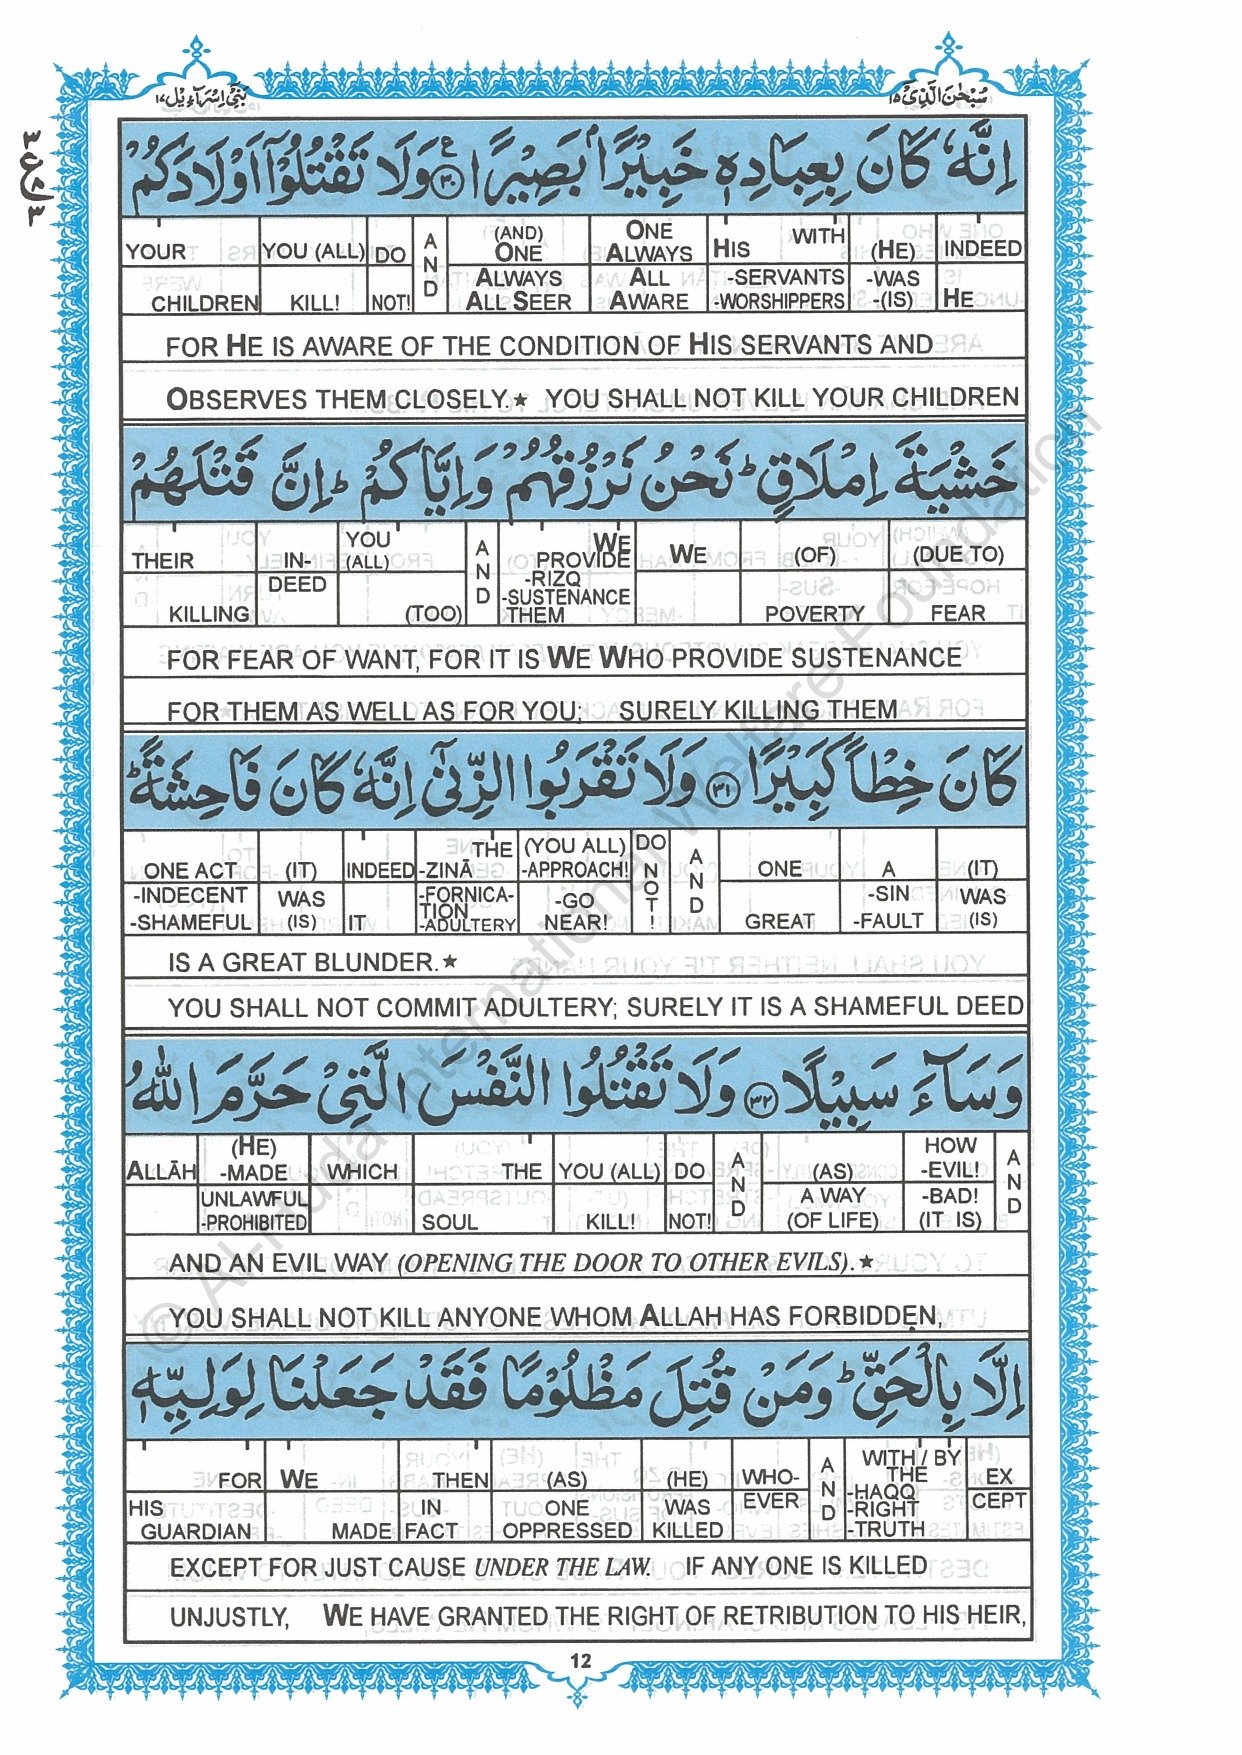 بَنِيْٓ اِسْرَآءِيْل ١٧
سُبْحٰنَ الَّذِيْ ١٥
اِنَّهٗ كَانَ بِعِبَادِهٖ خَبِيْرًاۢ بَصِيْرًا ۝٣٠ وَلَا تَقْتُلُوْٓا اَوْلَادَكُمْ
YOUR CHILDREN | YOU (ALL) KILL! | DO NOT! | AND | (AND) ONE ALWAYS ALL SEER | ONE ALWAYS ALL AWARE | HIS WITH -SERVANTS -WORSHIPPERS | (HE) -WAS -(IS) | INDEED HE
FOR HE IS AWARE OF THE CONDITION OF HIS SERVANTS AND
OBSERVES THEM CLOSELY.★ YOU SHALL NOT KILL YOUR CHILDREN
خَشْيَةَ اِمْلَاقٍ ؕ نَحْنُ نَرْزُقُهُمْ وَاِيَّاكُمْ ؕ اِنَّ قَتْلَهُمْ
THEIR KILLING | IN-DEED | YOU (ALL) (TOO) | AND | WE PROVIDE -RIZQ -SUSTENANCE THEM | WE | (OF) POVERTY | (DUE TO) FEAR
FOR FEAR OF WANT, FOR IT IS WE WHO PROVIDE SUSTENANCE
FOR THEM AS WELL AS FOR YOU; SURELY KILLING THEM
كَانَ خِطْاً كَبِيْرًا ۝٣١ وَلَا تَقْرَبُوا الزِّنٰٓى اِنَّهٗ كَانَ فَاحِشَةً ؕ
ONE ACT -INDECENT -SHAMEFUL | (IT) WAS (IS) | INDEED IT | THE -ZINĀ -FORNICA-TION -ADULTERY | (YOU ALL) -APPROACH! -GO NEAR! | DO NOT! | AND | ONE GREAT | A -SIN -FAULT | (IT) WAS (IS)
IS A GREAT BLUNDER.★
YOU SHALL NOT COMMIT ADULTERY; SURELY IT IS A SHAMEFUL DEED
وَسَآءَ سَبِيْلًا ۝٣٢ وَلَا تَقْتُلُوا النَّفْسَ الَّتِيْ حَرَّمَ اللّٰهُ
ALLĀH | (HE) -MADE UNLAWFUL -PROHIBITED | WHICH | THE SOUL | YOU (ALL) KILL! | DO NOT! | AND | (AS) A WAY (OF LIFE) | HOW -EVIL! -BAD! (IT IS) | AND
AND AN EVIL WAY (OPENING THE DOOR TO OTHER EVILS).★
YOU SHALL NOT KILL ANYONE WHOM ALLAH HAS FORBIDDEN,
اِلَّا بِالْحَقِّ ؕ وَمَنْ قُتِلَ مَظْلُوْمًا فَقَدْ جَعَلْنَا لِوَلِيِّهٖ
FOR HIS GUARDIAN | WE MADE | THEN IN FACT | (AS) ONE OPPRESSED | (HE) WAS KILLED | WHO-EVER | AND | WITH / BY THE -HAQQ -RIGHT -TRUTH | EX CEPT
EXCEPT FOR JUST CAUSE UNDER THE LAW. IF ANYONE IS KILLED
UNJUSTLY, WE HAVE GRANTED THE RIGHT OF RETRIBUTION TO HIS HEIR,
12
© Al-Huda International Welfare Foundation